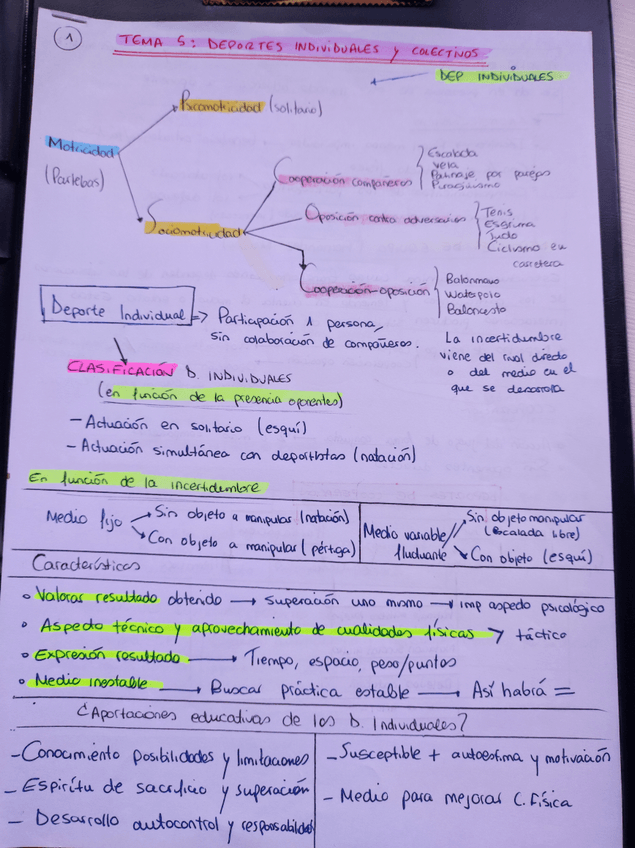 1
TEMA 5: DEPORTES INDIVIDUALES Y COLECTIVOS
DEP INDIVIDUALES
Psicomotricidad (solitario)
Motricidad
(Parlebas)
Sociomotricidad
Cooperación compañeros
Escalada
Vela
Patinaje por parejas
Piragüismo
Oposición contra adversarios
Tenis
Esgrima
Judo
Ciclismo en
carretera
Cooperación-oposición
Balonmano
Waterpolo
Baloncesto
Deporte Individual => Participación 1 persona,
sin colaboración de compañeros.
La incertidumbre
viene del rival directo
o del medio en el
que se desarrolla
CLASIFICACIÓN D. INDIVIDUALES
(en función de la presencia oponentes)
- Actuación en solitario (esquí)
- Actuación simultánea con deportistas (natación)
En función de la incertidumbre
Medio fijo
Sin objeto a manipular (natación)
Con objeto a manipular (pértiga)
Medio variable//
fluctuante
Sin objeto manipular
(Escalada libre)
Con objeto (esquí)
Características
• Valorar resultado obtenido → superación uno mismo → imp aspecto psicológico
• Aspecto técnico y aprovechamiento de cualidades físicas > táctico
• Expresión resultado → Tiempo, espacio, peso/puntos
• Medio inestable → Buscar práctica estable → Así habrá =
¿Aportaciones educativas de los D. Individuales?
- Conocimiento posibilidades y limitaciones
- Espíritu de sacrificio y superación
- Desarrollo autocontrol y responsabilidad
- Susceptible + autoestima y motivación
- Medio para mejorar C. Física